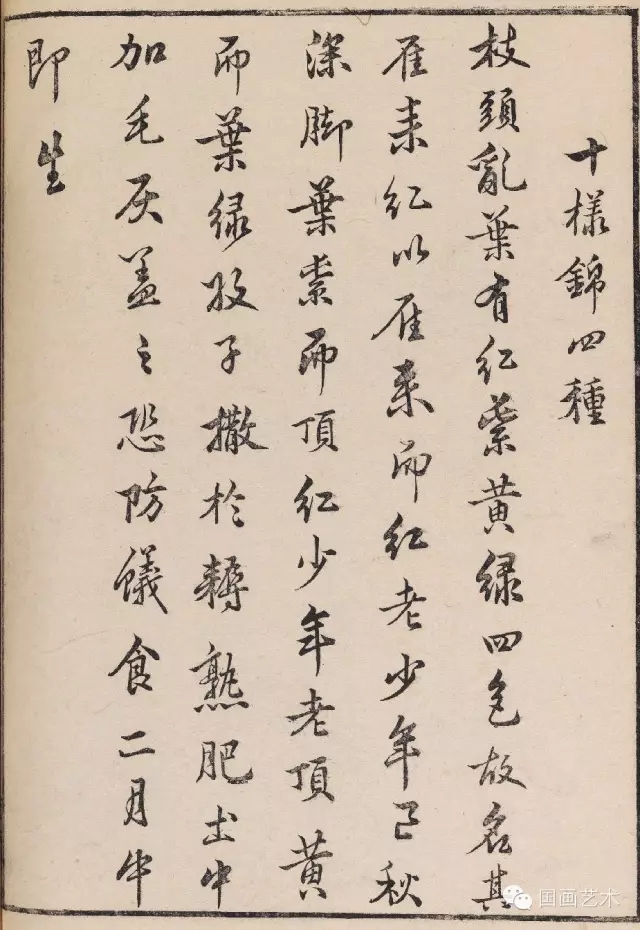 十樣錦四種
枝頭亂葉有紅紫黃綠四色故名其
雁来紅以雁来而紅老少年已秋
深脚葉紫而頂紅少年老頂黃
而葉綠收子撒於耨熟肥土中
加毛灰盖之恐防蟻食二月中
即生
国画艺术